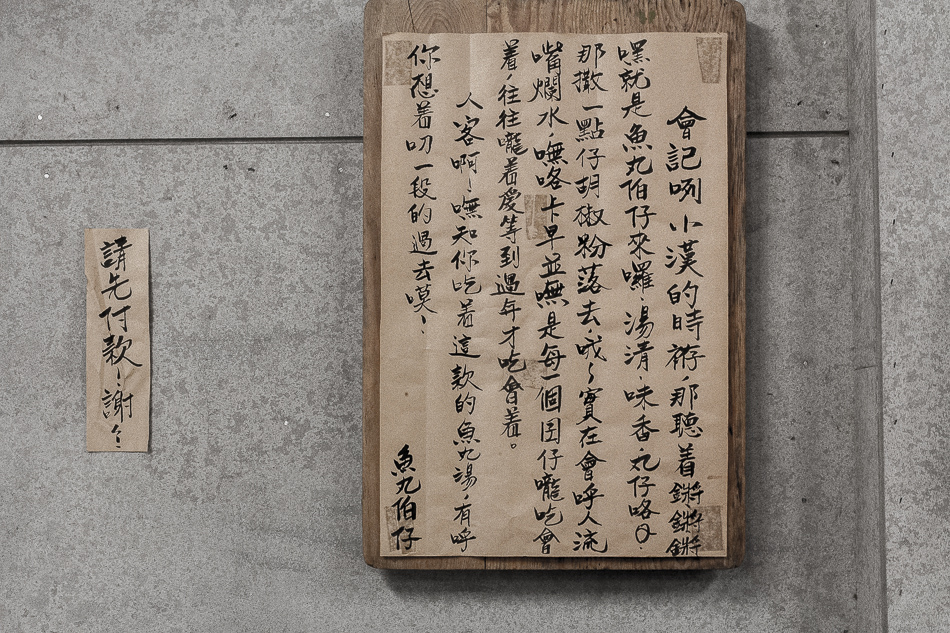 會記咧小漢的時袸，那聽着鏘鏘鏘
嘿就是魚丸伯仔來囉、湯清、味香、丸仔咯Q、
那撒一點仔胡椒粉落去，哦～實在會呼人流
嘴爛水，嘸咯卡早並嘸是每一個囝仔嚨吃會
着，往往嚨着愛等到過年才吃會着。
人客啊！嘸知你吃着這款的魚丸湯，有呼
你想着叨一段的過去嘆！
魚丸伯仔
請先付款！謝々！